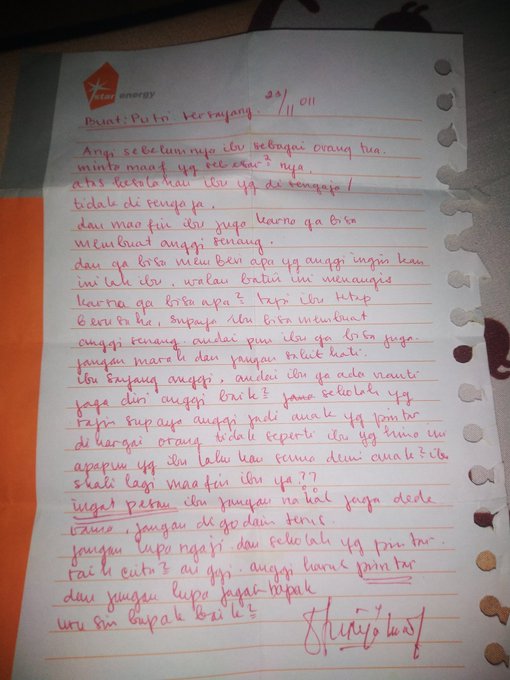 star energy
Buat: Putri tersayang. 23/11 011
Angi sebelum nya ibu sebagai orang tua.
minta maaf yg sebesar² nya.
atas kesalahan ibu yg di sengaja /
tidak di sengaja.
dan maafin ibu juga karna ga bisa
membuat anggi senang.
dan ga bisa memberi apa yg anggi ingin kan
inilah ibu, walau batin ini menangis
karna ga bisa apa² tapi ibu tetap
berusaha, supaya ibu bisa membuat
anggi senang. andai pun ibu ga bisa juga.
jangan marah dan jangan sakit hati.
ibu sayang anggi, andai ibu ga ada nanti
jaga diri anggi baik² sekolah yg
rajin supaya anggi jadi anak yg pintar
di hargai orang tidak seperti ibu yg hina ini
apapun yg ibu laku kan semua demi anak² ibu
skali lagi maafin ibu ya??
ingat pesan ibu jangan nakal jaga dede
jangan di godain terus.
jangan lupa ngaji dan sekolah yg pintar.
raih cita² anggi. anggi harus pintar
dan jangan lupa jagain bapak
urusin bapak baik²